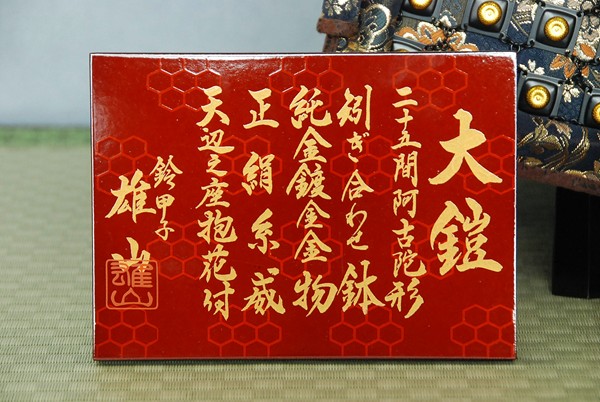 大鎧
二十五間阿古陀形
矧ぎ合わせ鉢
純金鍍金金物
正絹糸威
天辺之座抱花付
鈴甲子
雄山
雄山